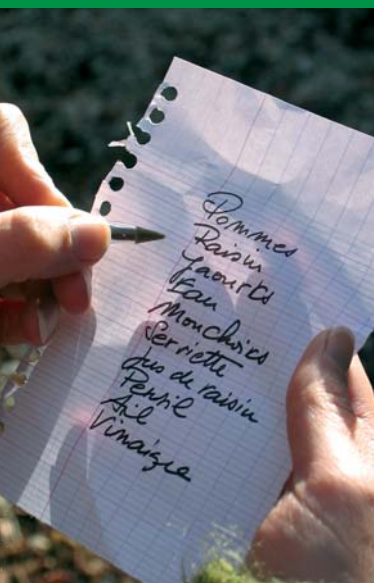 Pommes
Raisin
Yaourts
Eau
Mouchoirs
Serviette
Jus de raisin
Persil
Ail
Vinaigre